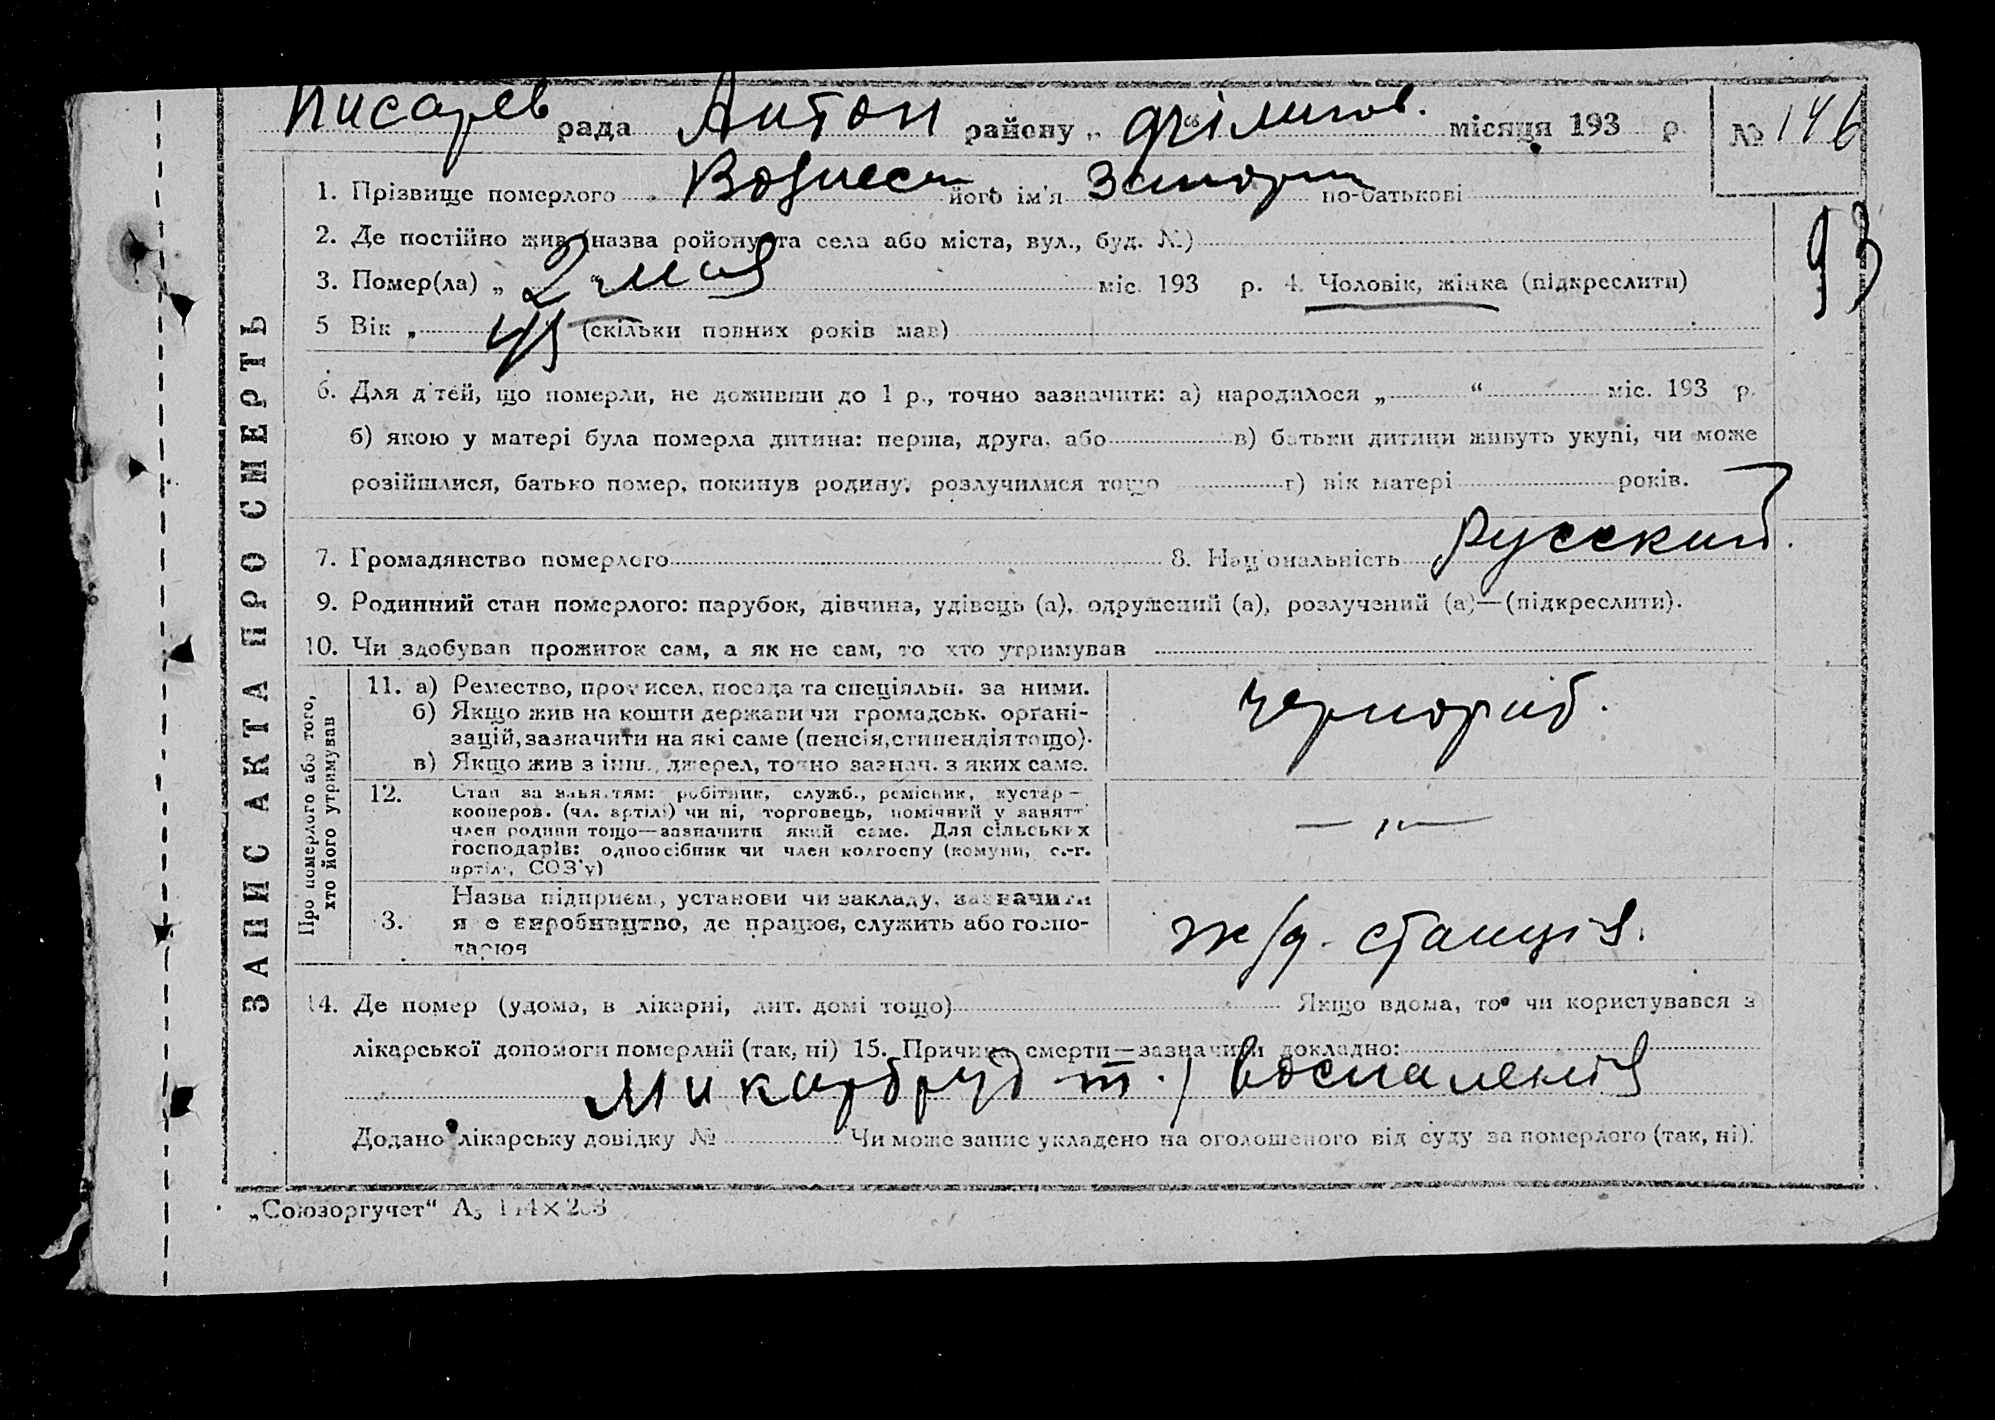 Писарев рада Антон району „ “ Філипов. місяця 193 р. № 146
1. Прізвище померлого Вознесен його ім'я Запорж по-батькові
93
2. Де постійно жив (назва ройону та села або міста, вул., буд. №)
3. Помер(ла) „ 2 “ мая міс. 193 р. 4. Чоловік, жінка (підкреслити)
5 Вік „ (скільки повних років мав)
6. Для дітей, що померли, не доживши до 1 р., точно зазначити: а) народилося „ “ міс. 193 р.
б) якою у матері була померла дитина: перша, друга, або в) батьки дитини живуть укупі, чи може
розійшлися, батько помер, покинув родину, розлучилися тощо г) вік матері років.
7. Громадянство померлого 8. Національність русский.
9. Родинний стан померлого: парубок, дівчина, удівець (а), одружений (а), розлучений (а)—(підкреслити).
10. Чи здобував прожиток сам, а як не сам, то хто утримував
ЗАПИСКА ТА ПРО СМЕРТЬ
Про померлого або того,
хто його утримував
11. а) Ремество, промисел, посада та спеціяльн. за ними.
б) Якщо жив на кошти держави чи громадськ. органі-
зацій, зазначити на які саме (пенсія, стипендія тощо).
в) Якщо жив з інш. джерел, точно зазнач. з яких саме.
чернороб.
12. Стан за заняттям: робітник, служб., ремісник, кустар—
кооперов. (чл. артілі) чи ні, торговець, помічний у занятті
член родини тощо—зазначити який саме. Для сільських
господарів: одноосібник чи член колгоспу (комуни, с.-г.
артілі, СОЗ'у)
— „ —
13. Назва підприєм., установи чи закладу, зазначити
яке виробництво, де працює, служить або госпо-
дарює
ж/д. станція.
14. Де помер (удома, в лікарні, дит. домі тощо) Якщо вдома, то чи користувався з
лікарської допомоги померлий (так, ні) 15. Причина смерти—зазначити докладно:
воспаления
Додано лікарську довідку № Чи може запис укладено на оголошеного від суду за померлого (так, ні).
„Союзоргучет“ А5